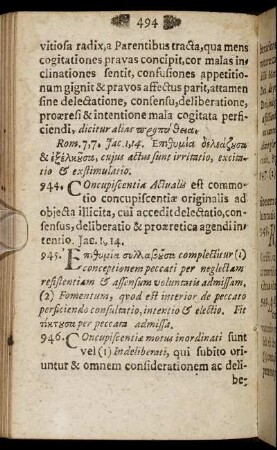 494
vitiosa radix, a Parentibus tracta, qua mens
cogitationes pravas concipit, cor malas in-
clinationes sentit, confusiones appetitio-
num gignit & pravos affectus parit, attamen
sine delectatione, consensu, deliberatione,
proæresi & intentione mala cogitata perfi-
ciendi, dicitur alias
Rom. 7, 7. Jac. 1, 14. Επιθυμία δελεάζουσα
& ἐξέλκουσα, cujus actus sunt irritatio, excita-
tio & exstimulatio.
944. Concupiscentia Actualis est commo-
tio concupiscentiæ originalis ad
objecta illicita, cui accedit delectatio, con-
sensus, deliberatio & proæretica agendi in-
tentio. Jac. 1, 14.
945. Επιθυμία συλλαβοῦσα complectitur (1)
conceptionem peccati per neglectam
resistentiam & assensum voluntatis admissam,
(2) Fomentum, quod est interior de peccato
perficiendo consultatio, intentio & electio. Fit
τίκτουσα per peccata admissa.
946. Concupiscentiæ motus inordinati sunt
vel (1) Indeliberati, qui subito ori-
untur & omnem considerationem ac deli-
be-